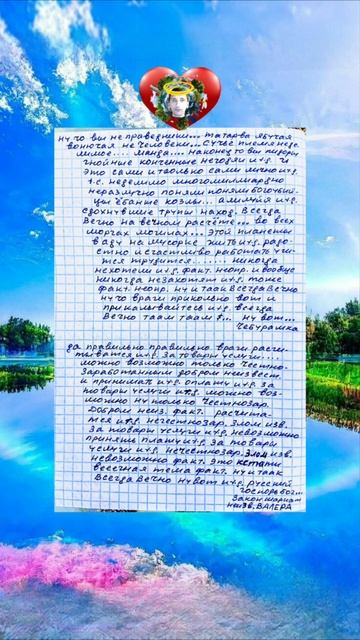 ну чо вы не праведники... татарва ябучая
вонючая не человеки... сучье племя неде
лимое.... манда.... наконец то вы пидоры
гнойные конченные негодяи и т.д. и
это сами и таольно сами лично и т.д
т.е. неделимо многомиллиардно
неразлучно поняли поняли богочубий
цы ёбаные козлы... алилуйя и т.д.
сдохнувшие трупы наход. всегда
вечно на вечной расчёте... во всех
моргах могилах... этой планеты
в аду на мусорке жить и т.д. радо-
стно и счастливо работать учи-
тся трудится....... никогда
нехотели и т.д. факт. неопр. и вообще
никогда незахотят и т.д. тоже
факт. неопр. ну и таак всегда вечно
ну чо враги прикольно вот и
прикалывайтесь и т.д. всегда
вечно таам таам в... ну вот...
Чебурашка
да правильно правильно враги расчи-
тыватся и т.д. за товары услуги....
можно возможно только честно-
заработанным добром неизвесн.
и принимат и т.д. оплату и т.д. за
товары услуги и т.д. можно воз-
можно ну только честнозар.
добром неиз. факт. расчита-
тся и т.д. нечестнозар. злом изв.
за товары услуги и т.д. невозможно
принять плату и т.д. за товары
услуги и т.д. нечестнозар. злом изв.
невозможно факт. это кстати
весечная тема факт. ну и таак
всегда вечно ну вот и т.д. русский
господь бог...
закон шариат
неизв. ВАЛЕРА